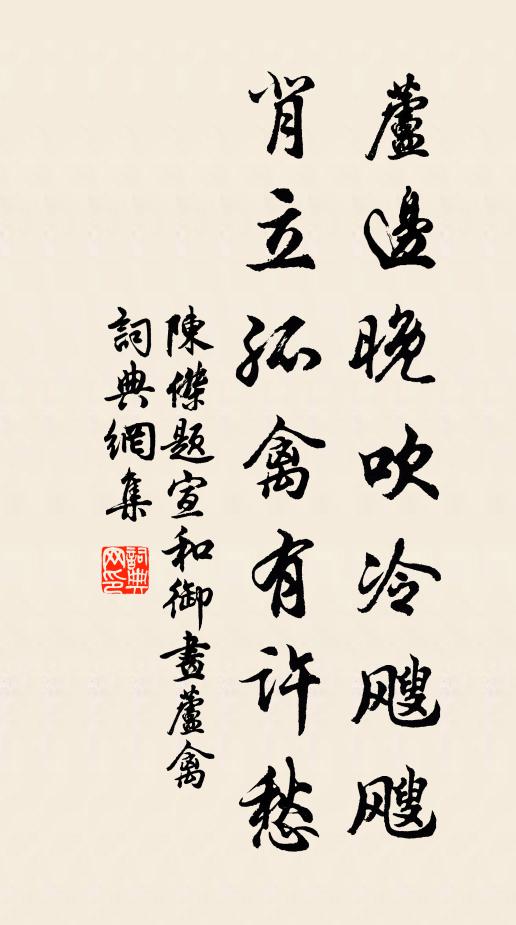 蘆邊晚吹冷颼颼
背立孤禽有許愁
陳傑題宣和御畫蘆禽
詞典網集
詞典网印